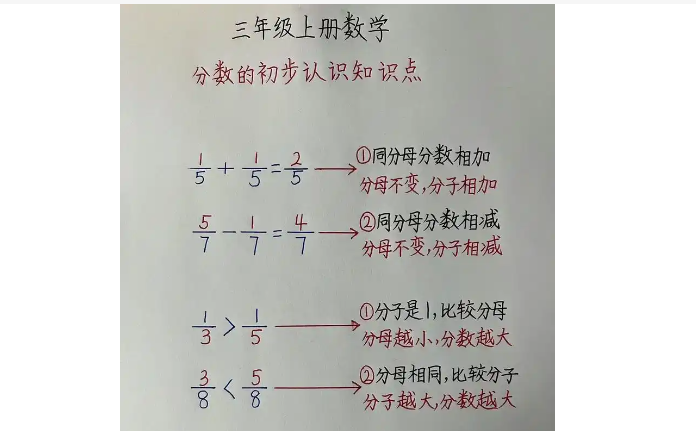 三年级上册数学
分数的初步认识知识点
1/5 + 1/5 = 2/5 → ①同分母分数相加
分母不变,分子相加
5/7 - 1/7 = 4/7 → ②同分母分数相减
分母不变,分子相减
1/3 > 1/5 → ①分子是1,比较分母
分母越小,分数越大
3/8 < 5/8 → ②分母相同,比较分子
分子越大,分数越大